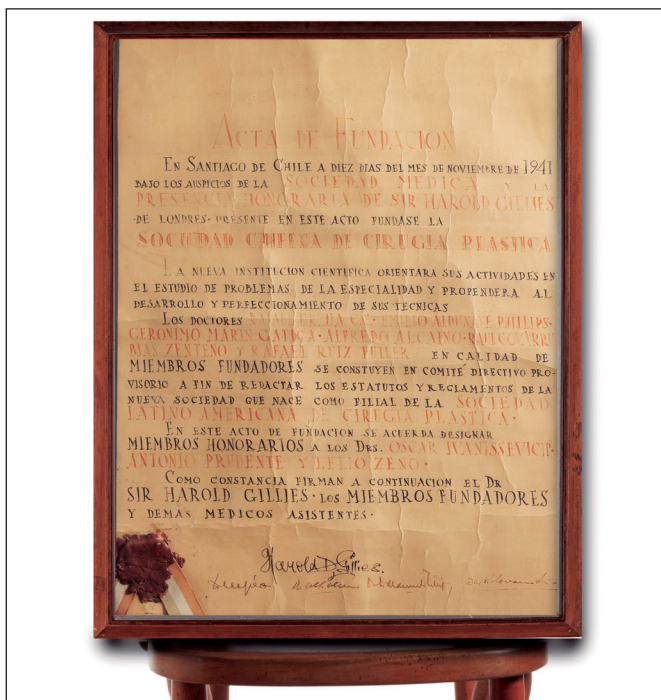 ACTA DE FUNDACION
EN SANTIAGO DE CHILE A DIEZ DIAS DEL MES DE NOVIEMBRE DE 1941
BAJO LOS AUSPICIOS DE LA SOCIEDAD MEDICA Y LA
PRESENCIA HONORARIA DE SIR HAROLD GILLIES
DE LONDRES· PRESENTE EN ESTE ACTO FUNDASE LA
SOCIEDAD CHILENA DE CIRUGIA PLASTICA
LA NUEVA INSTITUCION CIENTIFICA ORIENTARA SUS ACTIVIDADES EN
EL ESTUDIO DE PROBLEMAS DE LA ESPECIALIDAD Y PROPENDERA AL
DESARROLLO Y PERFECCIONAMIENTO DE SUS TECNICAS
LOS DOCTORES PHILLIPS·
GERONIMO MARIN GATICA· ALFREDO ALCAINO· RAUL COVARRU
BIAS ZENTENO Y RAFAEL RUIZ EN CALIDAD DE
MIEMBROS FUNDADORES SE CONSTUYEN EN COMITE DIRECTIVO PRO-
VISORIO A FIN DE REDACTAR LOS ESTATUTOS Y REGLAMENTOS DE LA
NUEVA SOCIEDAD QUE NACE COMO FILIAL DE LA SOCIEDAD
LATINO AMERICANA DE CIRUGIA PLASTICA·
EN ESTE ACTO DE FUNDACION SE ACUERDA DESIGNAR
MIEMBROS HONORARIOS A LOS DRS. OSCAR
ANTONIO PRUDENTE Y LELIO ZENO·
COMO CONSTANCIA FIRMAN A CONTINUACION EL DR
SIR HAROLD GILLIES· LOS MIEMBROS FUNDADORES
Y DEMAS MEDICOS ASISTENTES·
Harold D. Gillies.